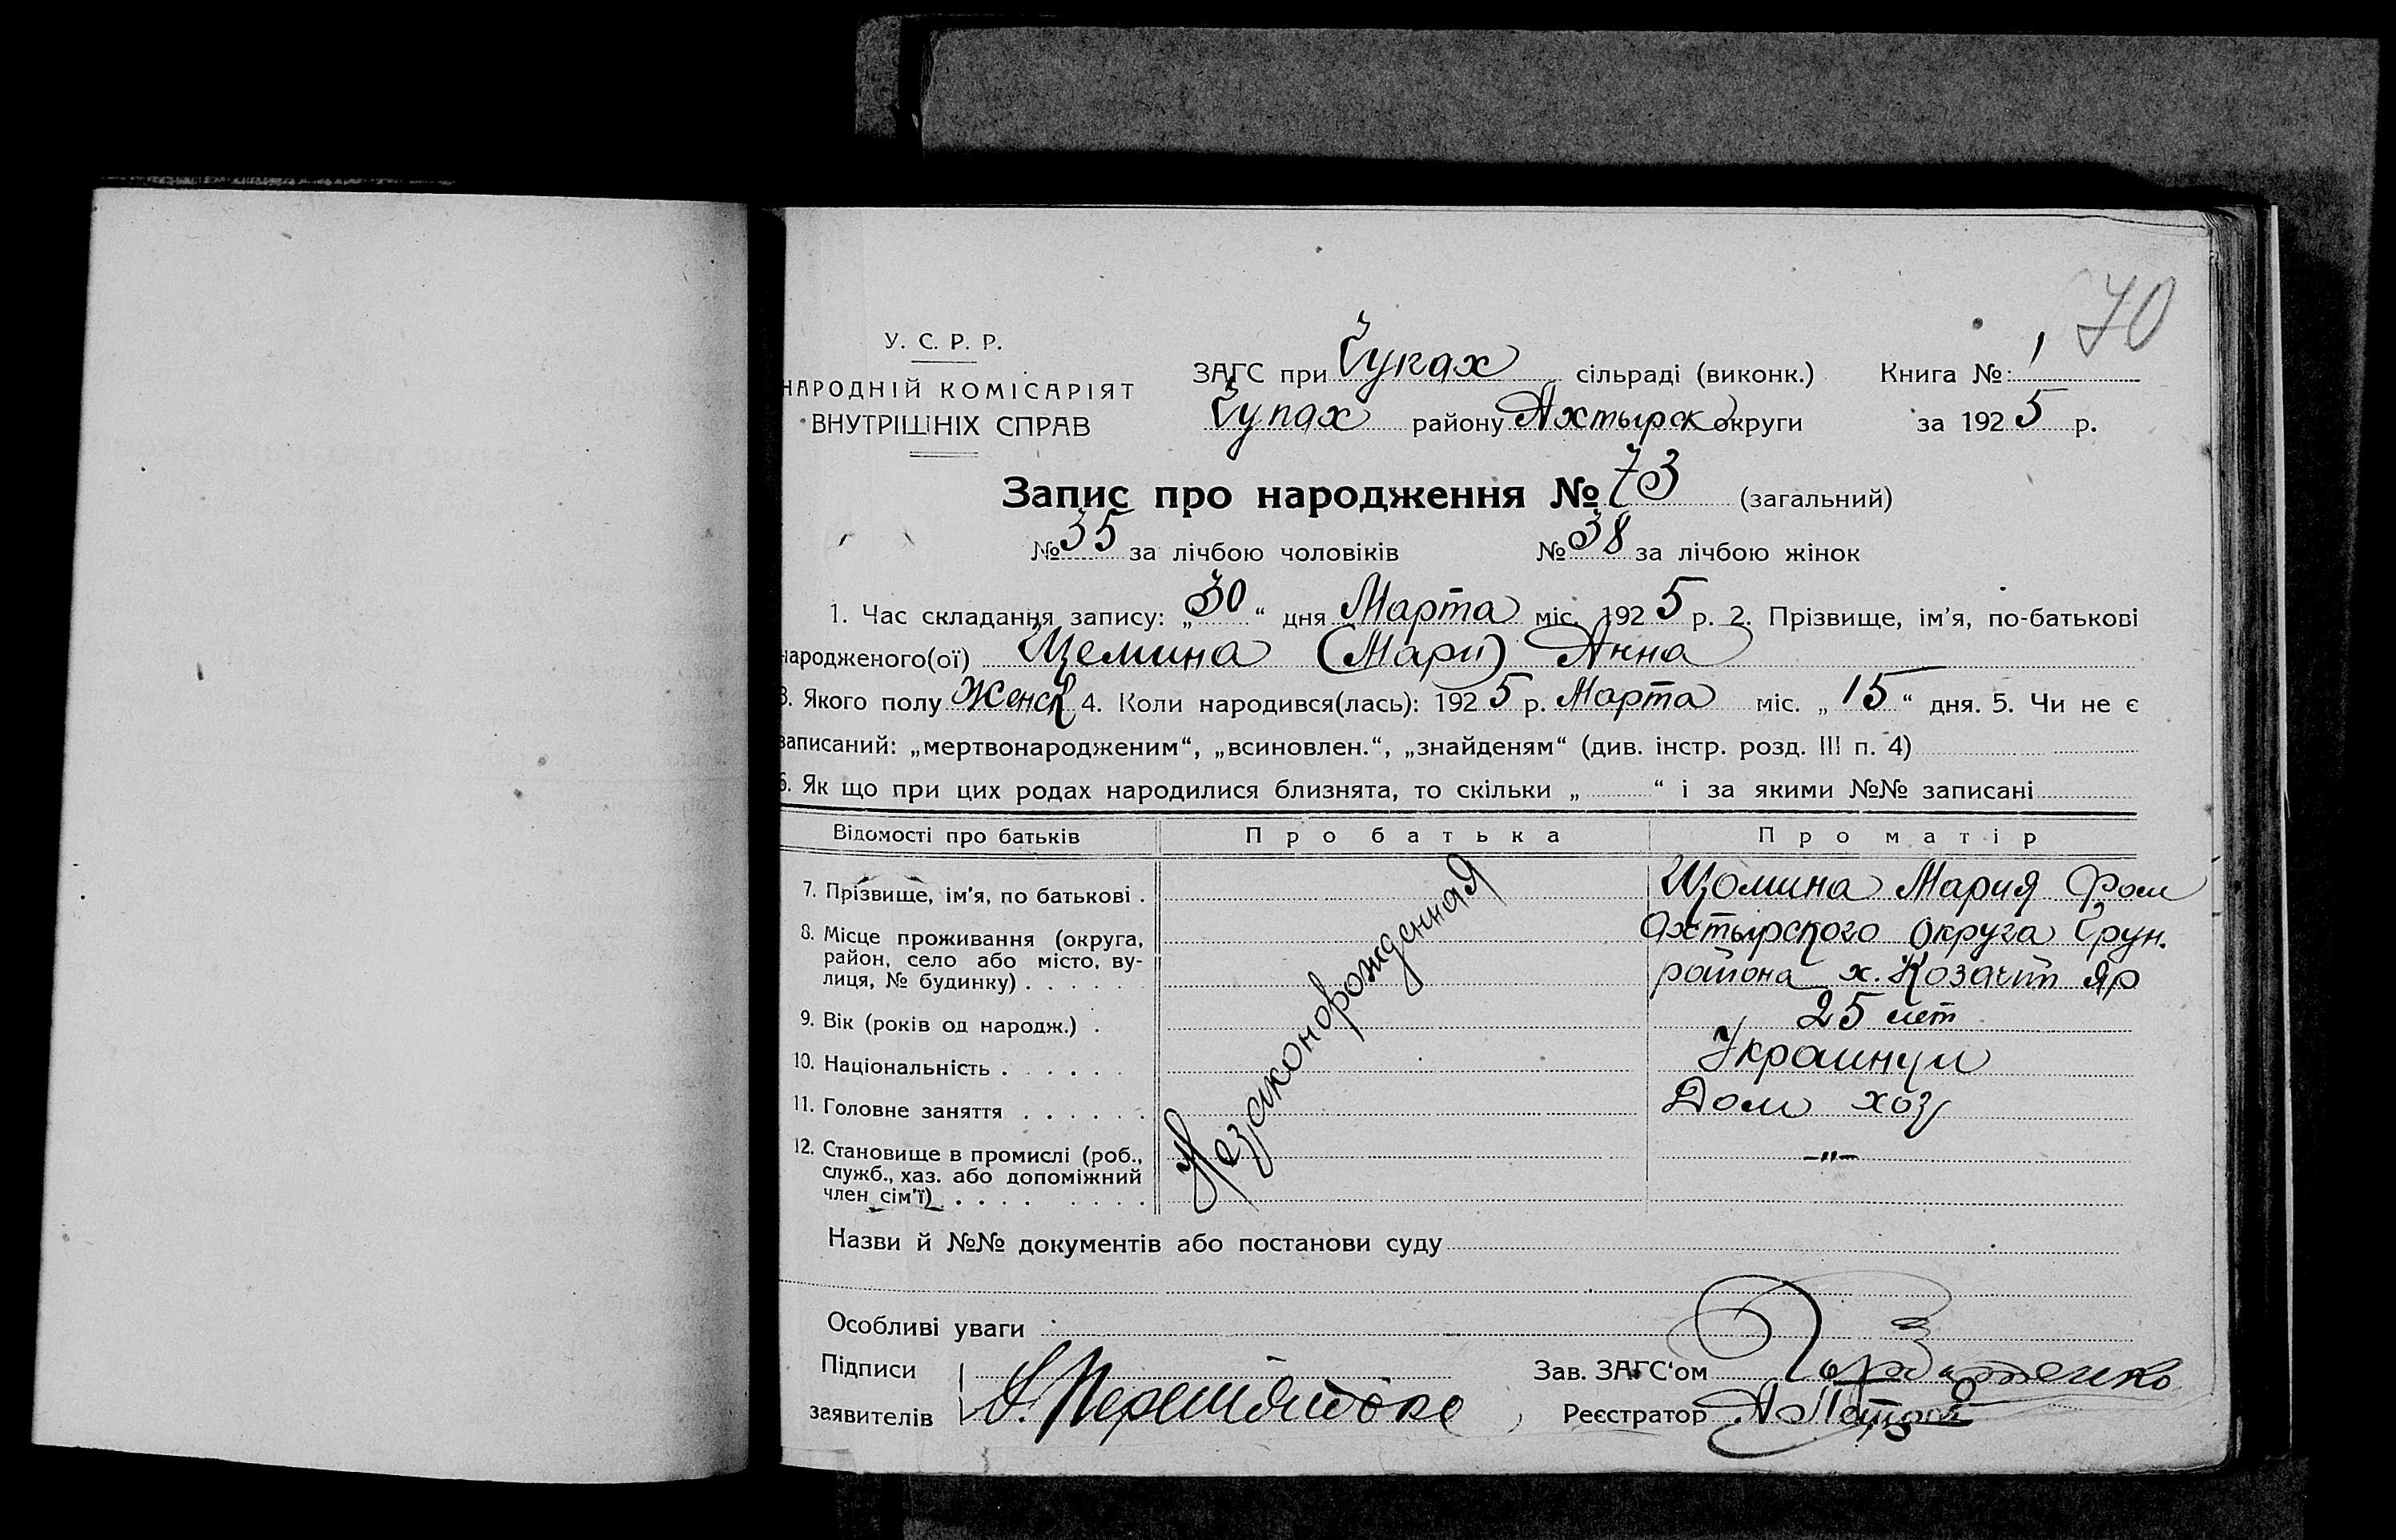 70
У. С. Р. Р.
НАРОДНІЙ КОМІСАРІЯТ
ВНУТРІШНІХ СПРАВ
ЗАГС при Чупах сільраді (виконк.) Книга №: 1
Чупах району Ахтырск округи за 1925 р.
Запис про народження № 73 (загальний)
№ 35 за лічбою чоловіків № 38 за лічбою жінок
1. Час складання запису: „30“ дня Марта міс. 1925 р. 2. Прізвище, ім’я, по-батькові
народженого(ої) (Мари) Анна
3. Якого полу Женск 4. Коли народився(лась): 1925 р. Марта міс. „15“ дня. 5. Чи не є
записаний: „мертвонародженим“, „всиновлен.“, „знайденям“ (див. інстр. розд. III п. 4)
6. Як що при цих родах народилися близнята, то скільки „ “ і за якими №№ записані
Відомості про батьків Про батька Про матір
7. Прізвище, ім’я, по батькові . Мария Фом
8. Місце проживання (округа, Ахтырского округа Грун.
район, село або місто, ву-
лиця, № будинку) . . . . . района х. Козачий Яр
9. Вік (років од народж.) . 25 лет
10. Національність . . . . . .
11. Головне заняття . . . . . . Дом хоз
12. Становище в промислі (роб., -"-
служб., хаз. або допоміжний
член сім’ї) . . . . . . . .
Незаконорожденная
Назви й №№ документів або постанови суду
Особливі уваги
Підписи Зав. ЗАГС‘ом
заявителів Реєстратор